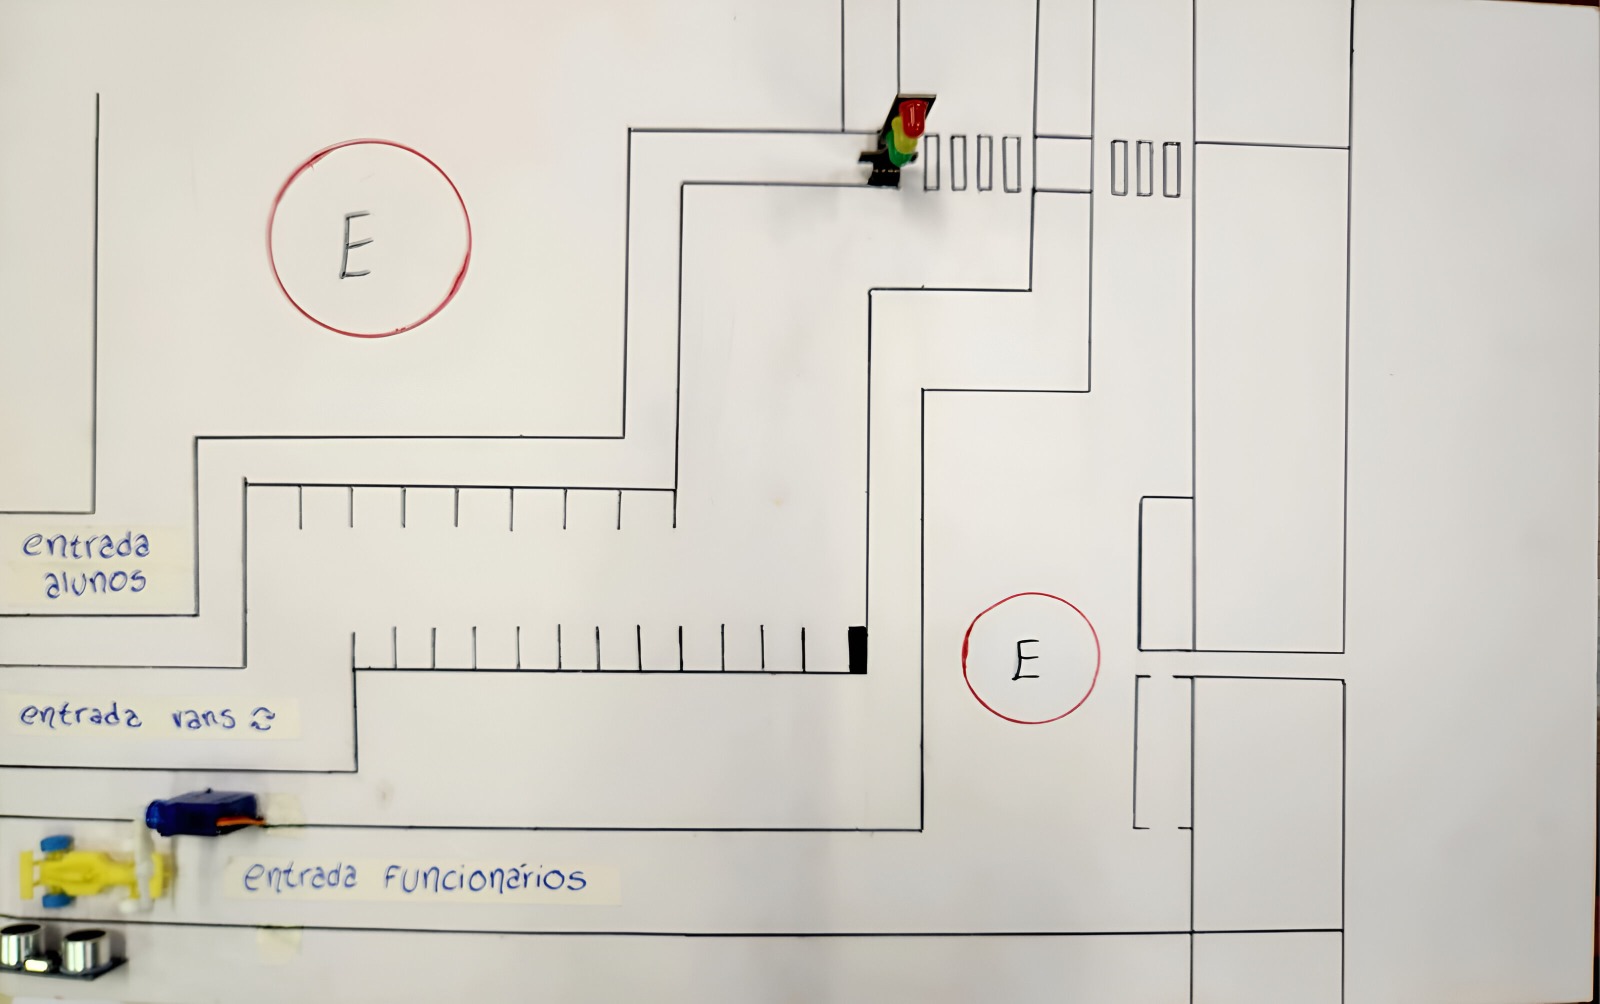 E
entrada
alunos
E
entrada vans
entrada funcionários